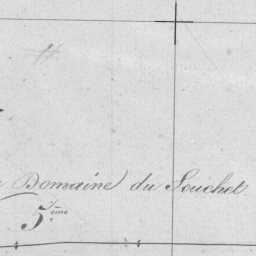 Domaine du Souchet
5ème